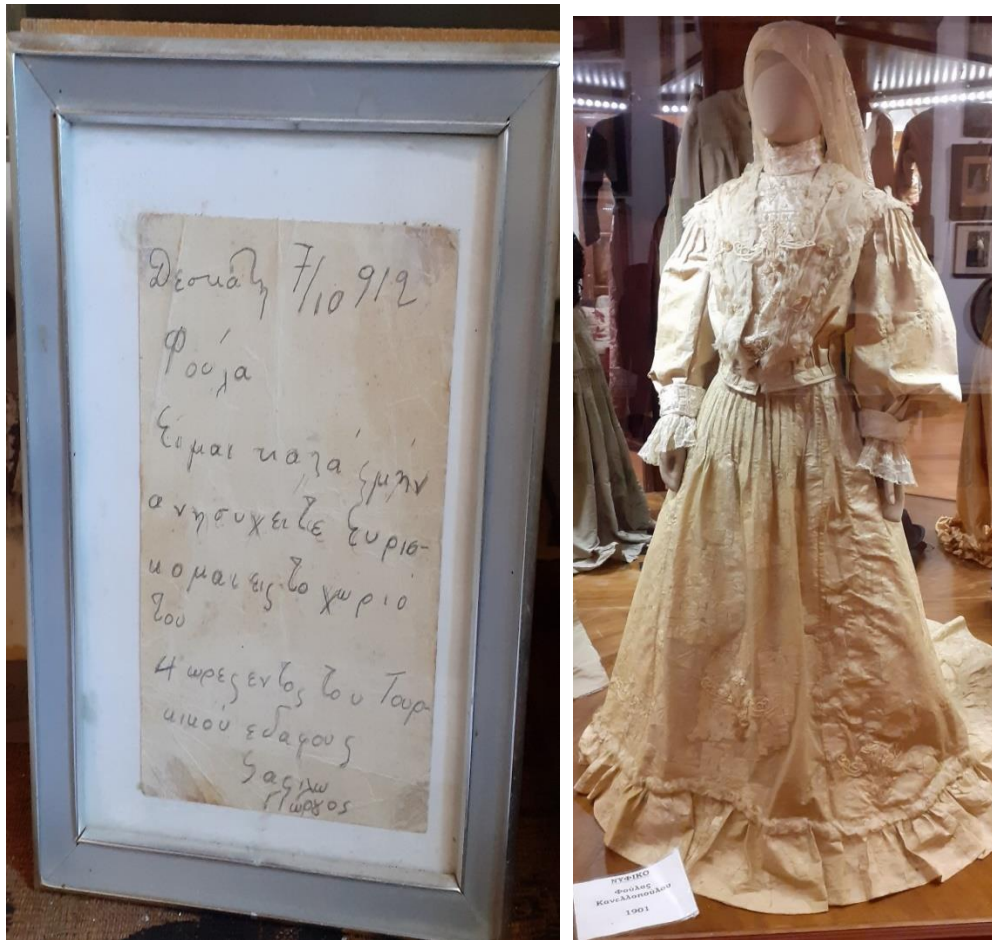 Δεσκάτη 7/10 912
Φούλα
Είμαι καλά μήν
ανησυχειτε Ευρισ-
κομαι εις το χωριο
του
4 ωρες εντος του Τουρ-
κικού εδαφους
Σας φιλω
Γιώργος
ΝΥΦΙΚΟ
Φούλας
Κανελλοπούλου
1901